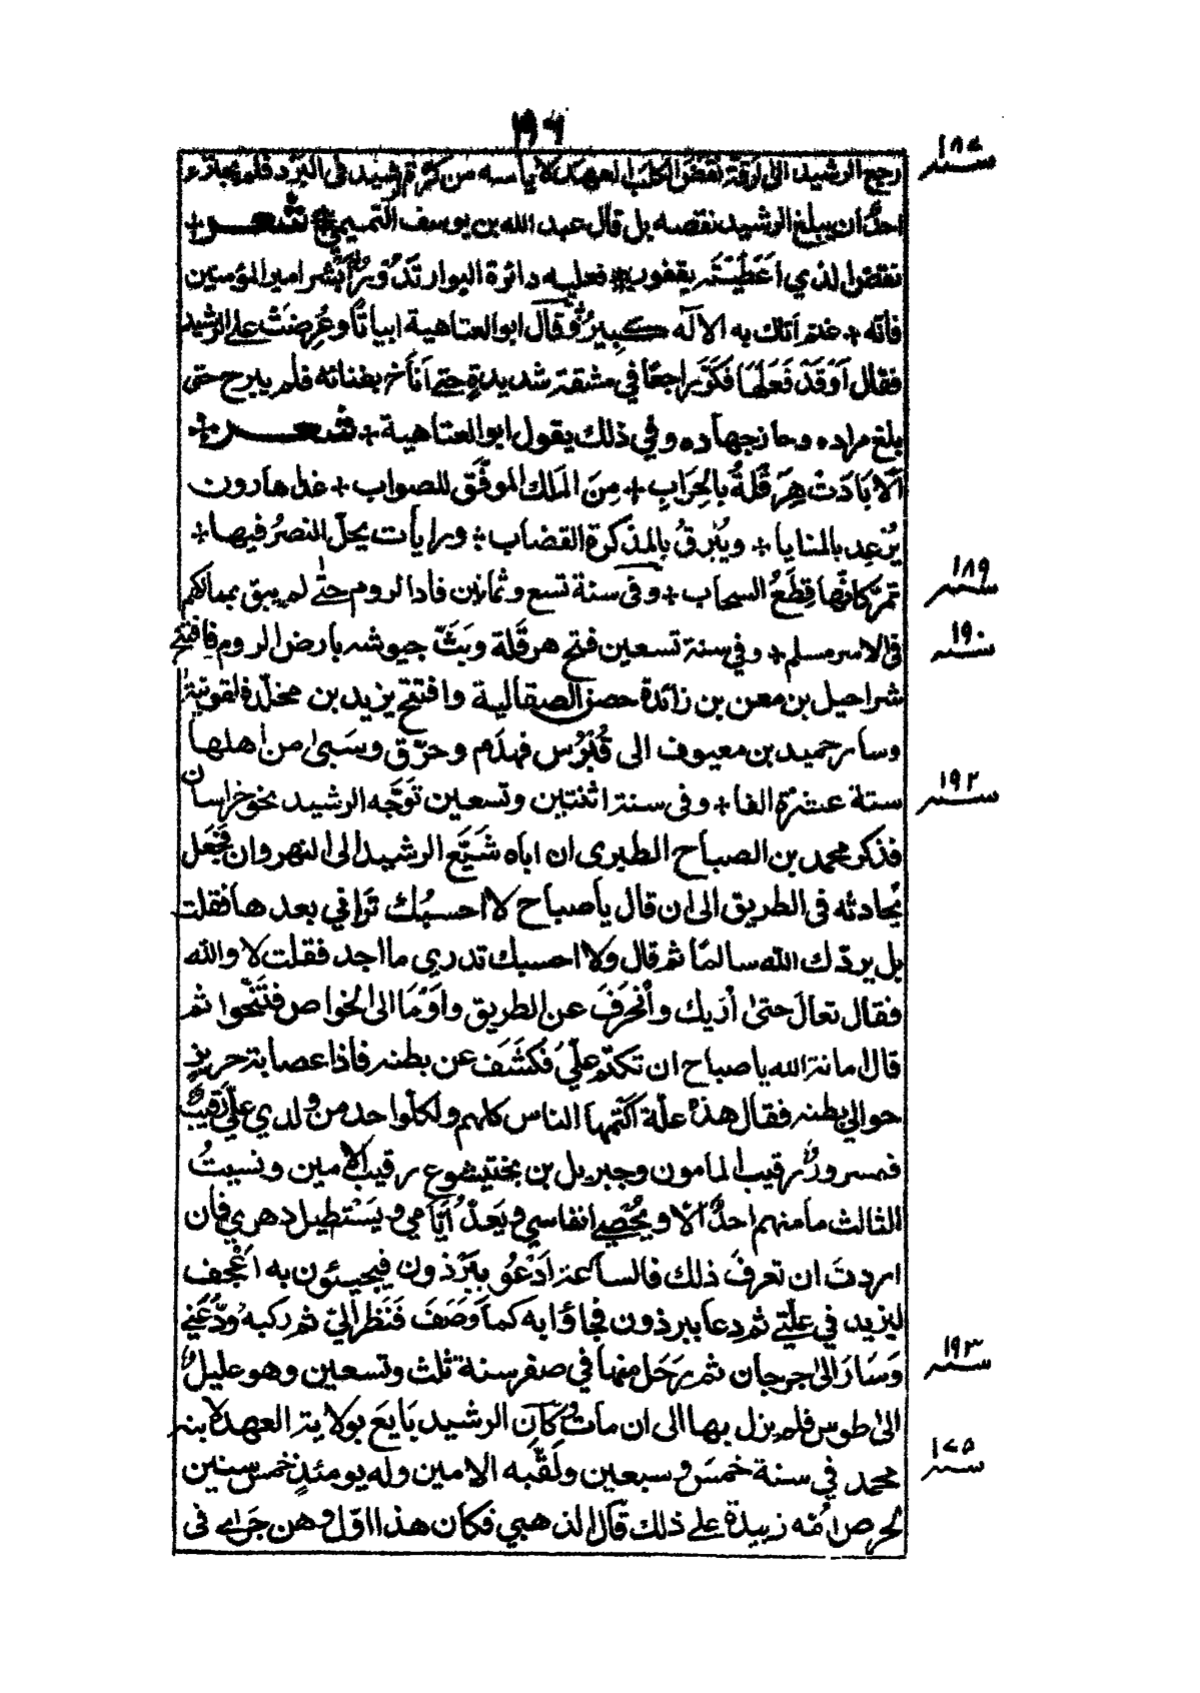 ١٩٦
سنة ١٨٧
رجع الرشيد الى الرقة نقض الكلب العهد لاياسه من كرّة الرشيد فى البرد فلم يجترء
احدٌ ان يبلغ الرشيد نقضه بل قال عبد الله بن يوسف التميمي + شعر +
نقض الذي اَعْطَيْتَه يقفور + فعليه دائرة البوار تَدُوْرُ + اَبْشر امير المؤمنين
فانه + غنم اتاك به الالٰه كَبِيرُ + وقال ابو العتاهية ابياتًا وعُرِضَتْ على الرشيد
فقال اَوَقَدْ فَعَلَهَا فَكَرَّ راجعًا في مشقة شديدةٍ حتى اَنَاخ بفنائه فلم يبرح حتى
بلغ مراده وحاز جهاده وفي ذلك يقول ابو العتاهية + شعر +
اَلَا بَادَتْ هِرَقْلَةُ بالحِرَابِ + مِنَ المَلك الموفّق للصواب + غدا هارون
يُرْعِد بالمنايا + ويُبْرقُ بالمذكرة القضاب + ورايات يحلّ النصرُ فيها +
سنة ١٨٩
تمرّ كانّها قِطَعُ السحاب + وفى سنة تسع وثمانين فادا الروم حتّٰى لم يبق بممالكهم
سنة ١٩٠
فى الاسر مسلم + وفي سنة تسعين فتح هرقَلة وبَثَّ جيوشه بارض الروم فافتتح
شراحيل بن معن بن زائدة حصن الصقالية وافتتح يزيد بن مخلّد فلقونيةَ
وسار حميد بن معيوف الى قُبْرُس فهدَم وحرّق وسَبىٰ من اهلها
سنة ١٩٢
ستة عشرة الفا + وفى سنة اثنتين وتسعين توَجّه الرشيد نحو خراسان
فذكر محمد بن الصباح الطبرى ان اباه شَيَّع الرشيد الى النهروان فجَعل
يُحادثه فى الطريق الى ان قال يا صباح لا احسبُك تَرَاني بعد ها فقلت
بل يردّك الله سالمًا ثم قال ولا احسبك تدري ما اجد فقلت لا والله
فقال تعالَ حتىٰ أُرَيك وأنْحَرَفَ عن الطريق واَوْمَا الى الخواص فتَنَحّوا ثم
قال امانة الله يا صباح ان تكتم علَيّ فكَشَف عن بطنه فاذا عصابة حريرٍ
حوالي بطنه فقال هذه علّة اَكتُمها الناس كلهم ولكل واحد من ولدي علَيّ رقيبٌ
فمسرورٌ رقيب المامون وجبريل بن بختيشوع رقيب الامين ونسيتُ
الثالث ما منهم احدٌ الا ويُحْصِي انفاسي ويَعدُّ اَيّامي ويَسْتطيل دهري فان
اردتَ ان تعرفَ ذلك فالساعة اَدْعُو بِبَرْذون فيجيئون به اَعْجف
ليزيد في علّتي ثم دعا ببرذون فجاؤا به كما وَصَفَ فَنَظر اليّ ثم ركبه وَدَّعَني
سنة ١٩٣
وَسَارَ الىٰ جرجان ثم رَحَل منها في صفر سنة ثلث وتسعين وهو عليلٌ
الىٰ طوس فلم يزل بها الى ان مات + كان الرشيد بَايعَ بولاية العهد لابنه
سنة ١٧٥
محمد في سنة خمسَ وسبعين ولَقَّبه الامين وله يومئذٍ خمس سنين
لحرص اُمّه زبيدة على ذلك قال الذهبي فكان هذا اوّل وهن جَرىٰ فى